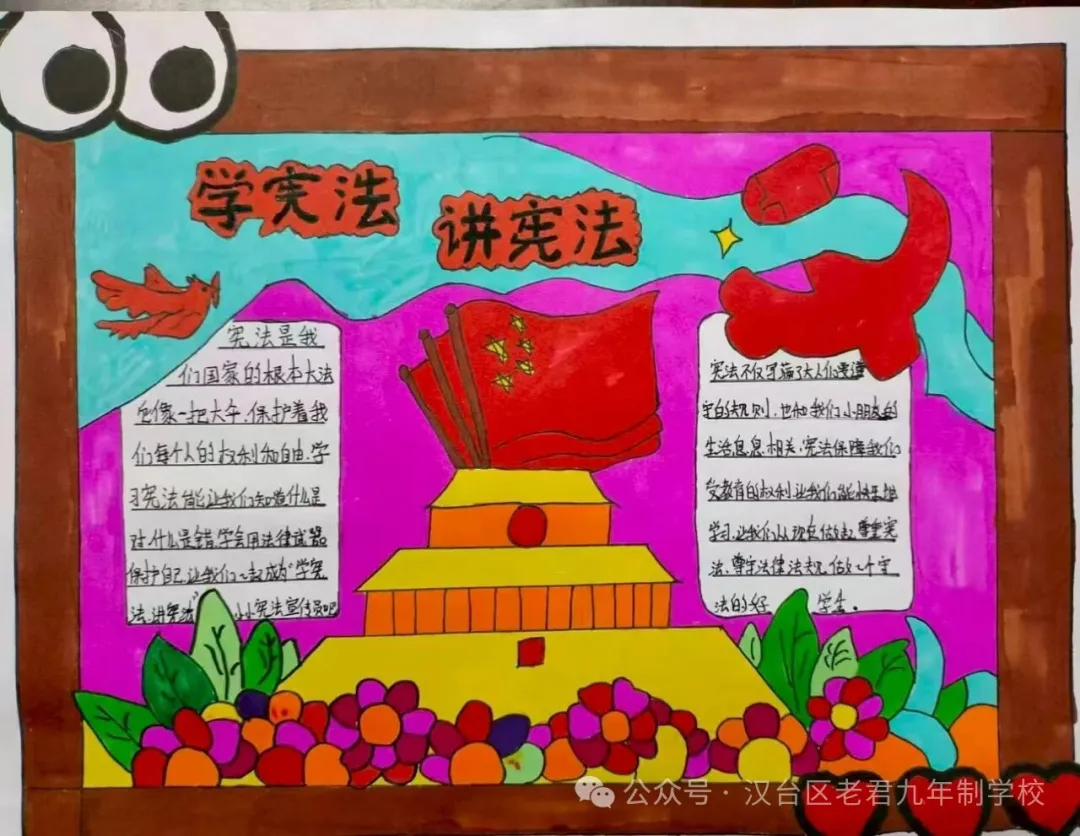 学宪法
讲宪法
宪法是我
们国家的根本大法
它像一把大伞,保护着我
们每个人的权利和自由.学
习宪法能让我们知道什么是
对,什么是错,学会用法律武器
保护自己.让我们一起成为“学宪
法,讲宪法”小小宪法宣传员吧
宪法不仅写满了大人们要遵
守的规则,也和我们小朋友的
生活息息相关,宪法保障我们
受教育的权利,让我们能快乐
学习,让我们从现在做起,尊重宪
法,尊守法律法规,做一个守
法的好学生。
公众号·汉台区老君九年制学校